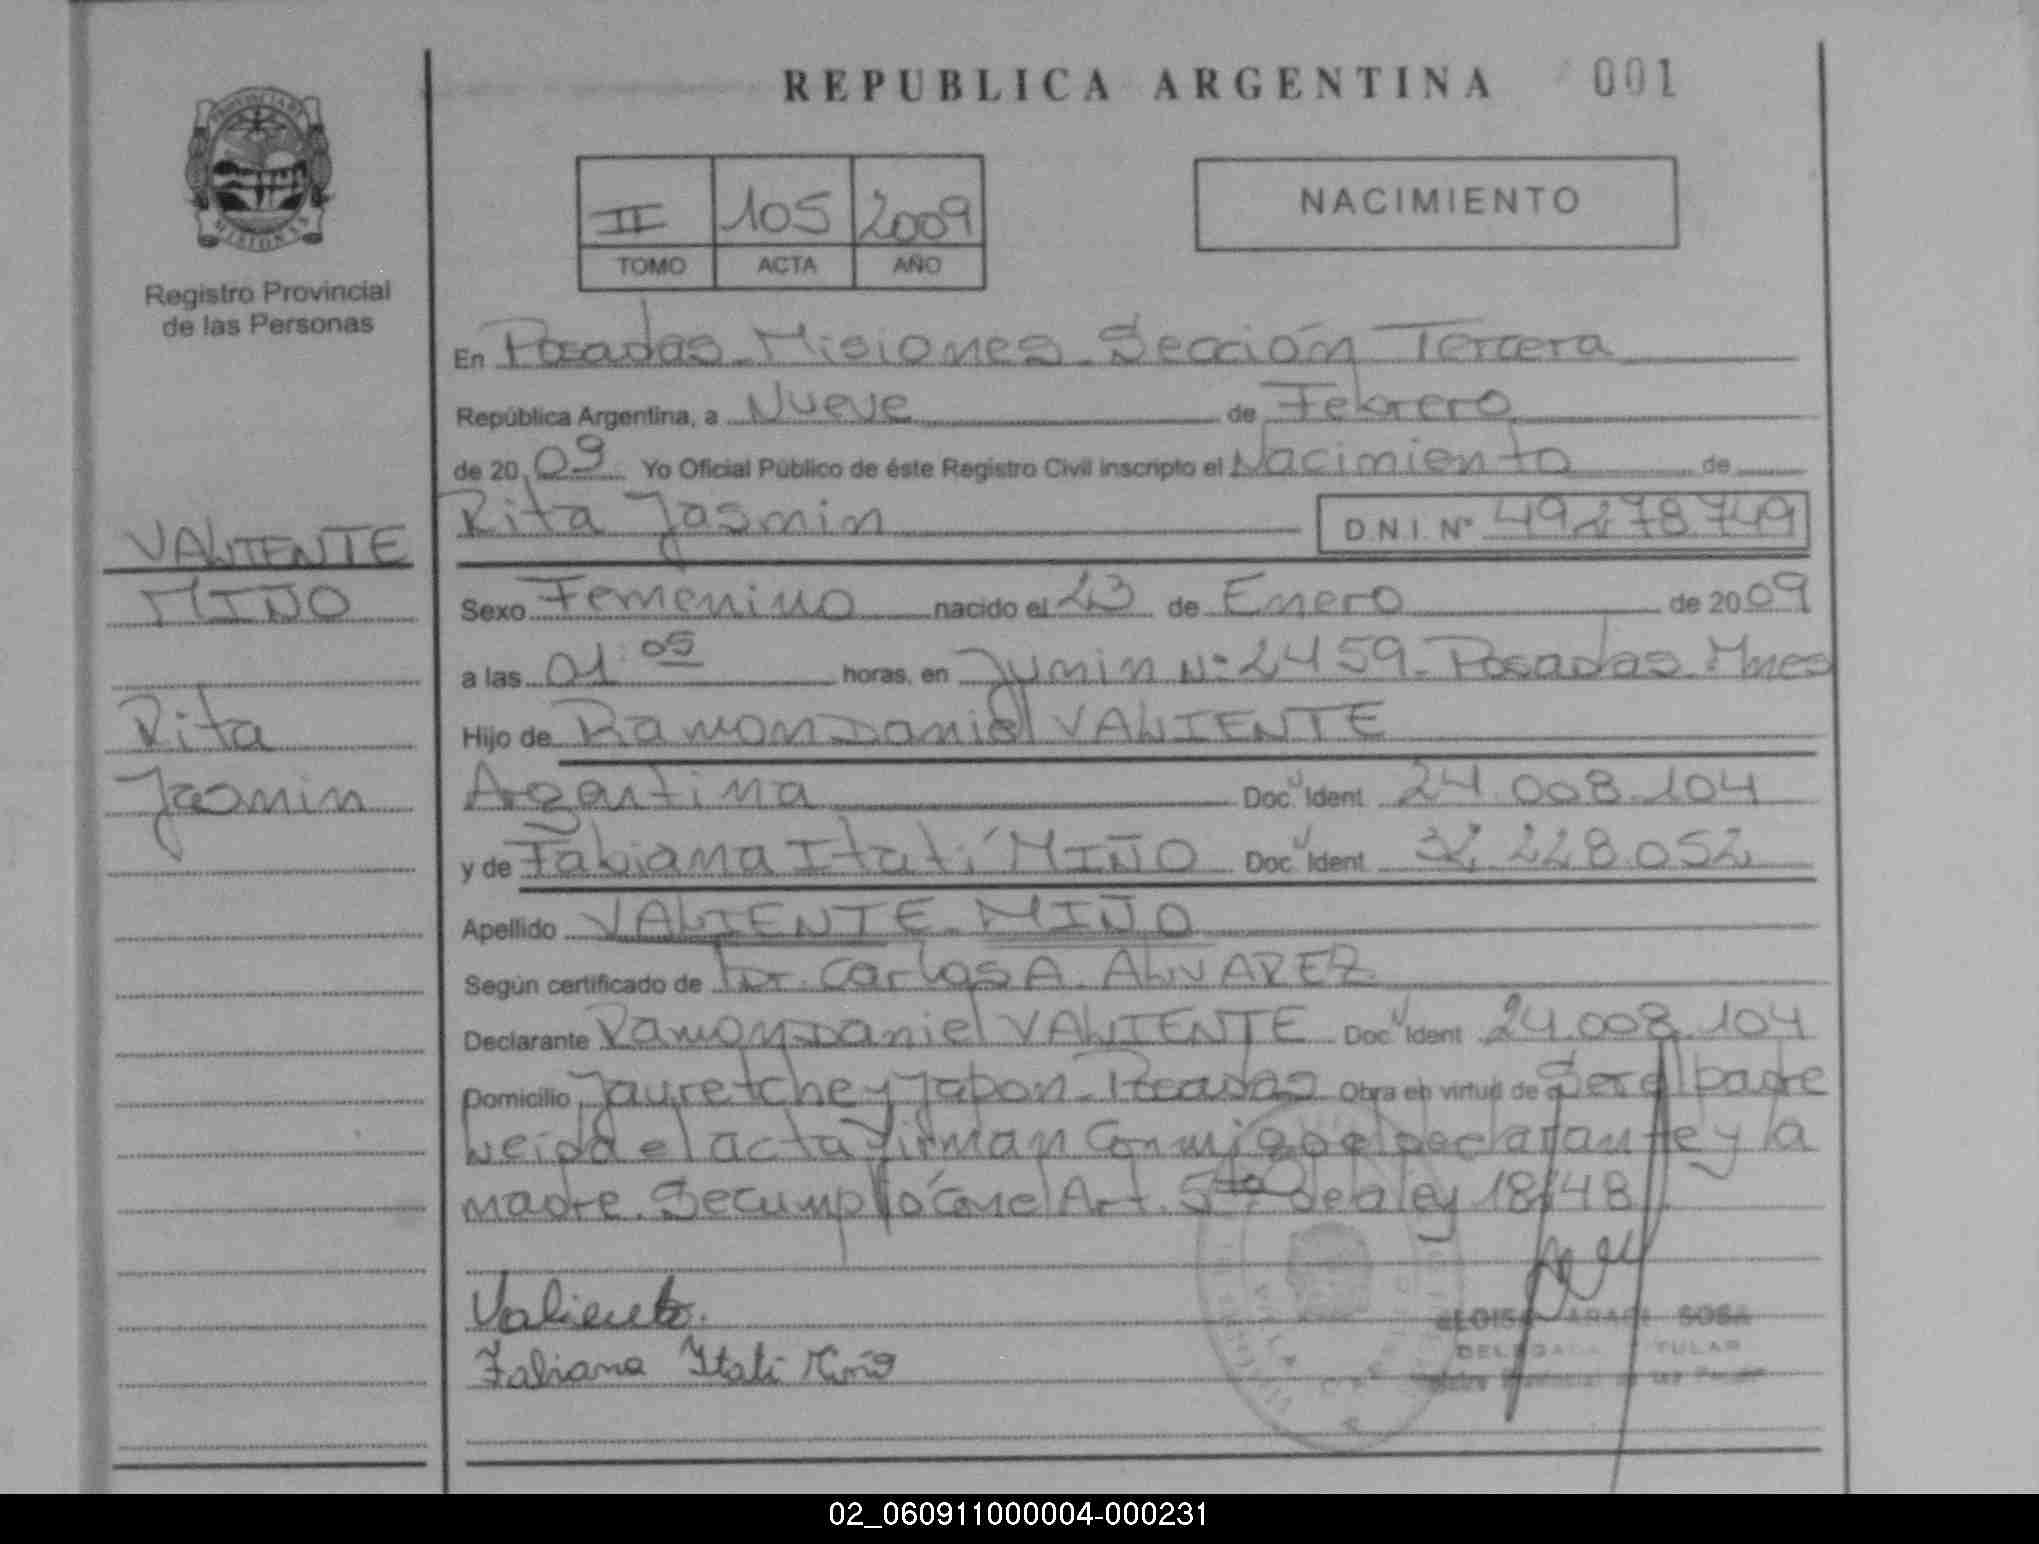 REPUBLICA ARGENTINA 001
PROVINCIA DE
MISIONES
Registro Provincial
de las Personas
II 105 2009
TOMO ACTA AÑO
NACIMIENTO
En Posadas - Misiones - Sección Tercera
República Argentina, a Nueve de Febrero
de 20 09 Yo Oficial Público de éste Registro Civil inscripto el Nacimiento de
Rita Jasmin D.N.I. Nº 49.278.749
VALIENTE
MIÑO
Rita
Jasmin
Sexo Femenino nacido el 23 de Enero de 20 09
a las 01:05 horas, en Junin Nº 2459 - Posadas Mnes
Hijo de Ramon Daniel VALIENTE
Argentina Doc. Ident 24.008.104
y de Fabiana Itatí MIÑO Doc. Ident 32.228.052
Apellido VALIENTE MIÑO
Según certificado de Dr. Carlos A. ALVAREZ
Declarante Ramon Daniel VALIENTE Doc. Ident 24.008.104
Domicilio Jauretche y Japon - Posadas Obra en virtud de Ser el padre
Leida el acta firman Conmigo el declarante y la
madre. Se cumplió con el Art. 5to de la ley 18248
Valiente.
Fabiana Itatí Miño
ELOISA ARACI SOSA
DELEGADA TITULAR
02_060911000004-000231